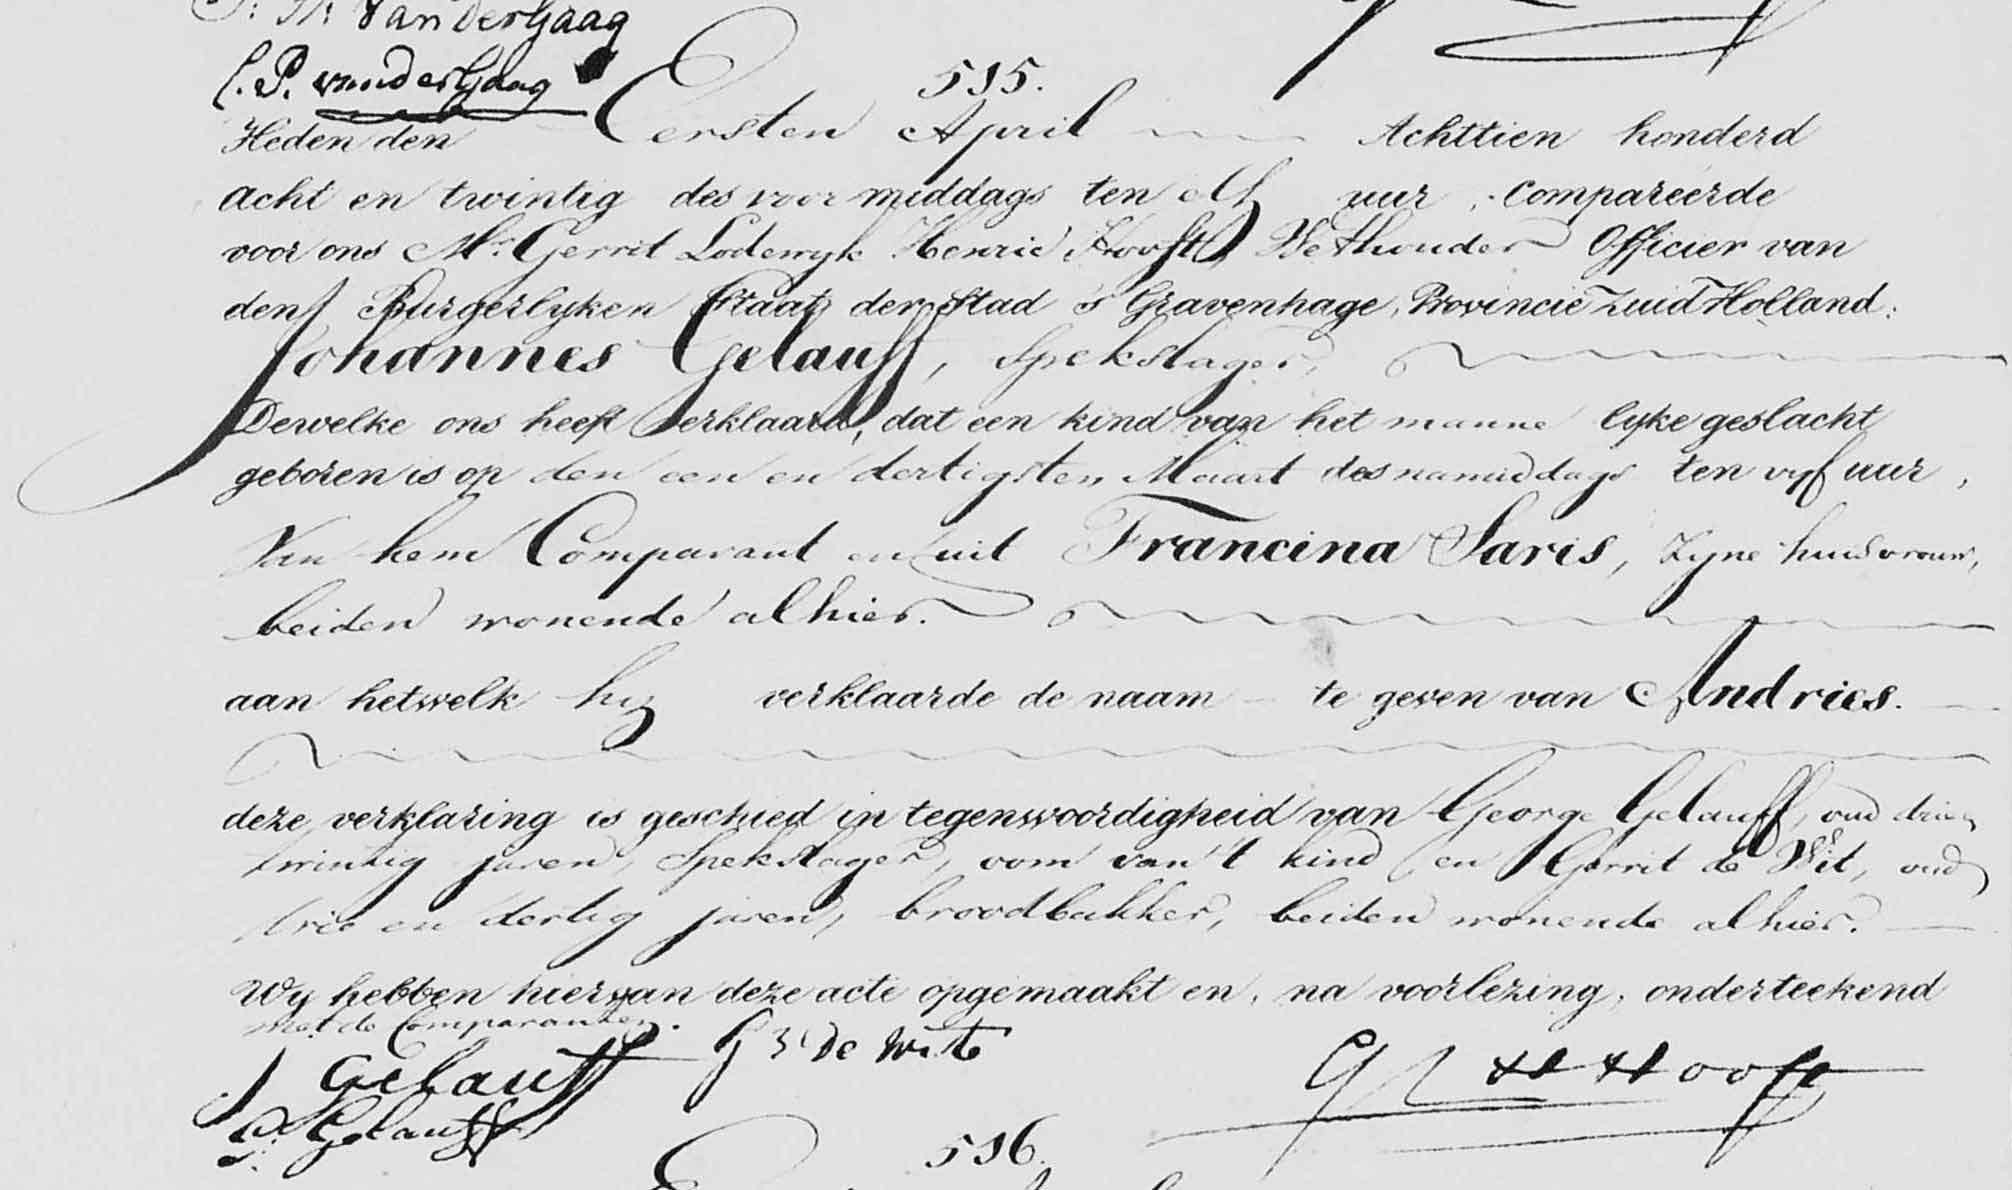 P. Th. van der Gaag
C. P. van der Gaag
515.
Heden den Eersten April Achttien honderd
acht en twintig des voormiddags ten elf uur, compareerde
voor ons Mr. Gerrit Lodewyk Henric Hooft Wethouder Officier van
den Burgerlyken Staat der Stad 's Gravenhage, Provincie Zuid Holland:
Johannes Gelauff, Spekslager,
Dewelke ons heeft verklaard, dat een kind van het manne lyke geslacht
geboren is op den een en dertigsten Maart des namiddags ten vyf uur,
Van hem Comparant en uit Francina Saris, Zyne huisvrouw,
beiden wonende alhier.
aan hetwelk hy verklaarde de naam te geven van Andries.
deze verklaring is geschied in tegenwoordigheid van George Gelauff, oud drie en
twintig jaren, Spekslager, oom van 't kind en Gerrit de Wit, oud
drie en dertig jaren, broodbakker, beiden wonende alhier.
Wy hebben hiervan deze acte opgemaakt en, na voorlezing, onderteekend
met de Comparanten.
J Gelauff G De Wit G L H Hooft
G. Gelauff
516.